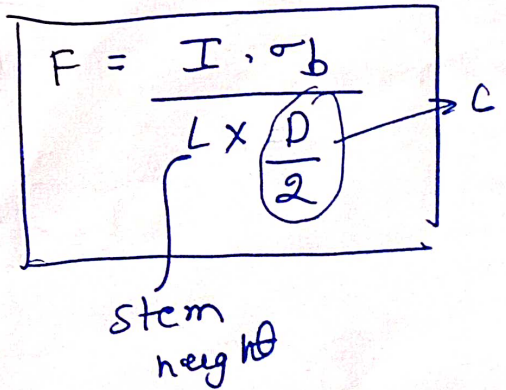 F = I . σb
L × D → C
2
stem
height